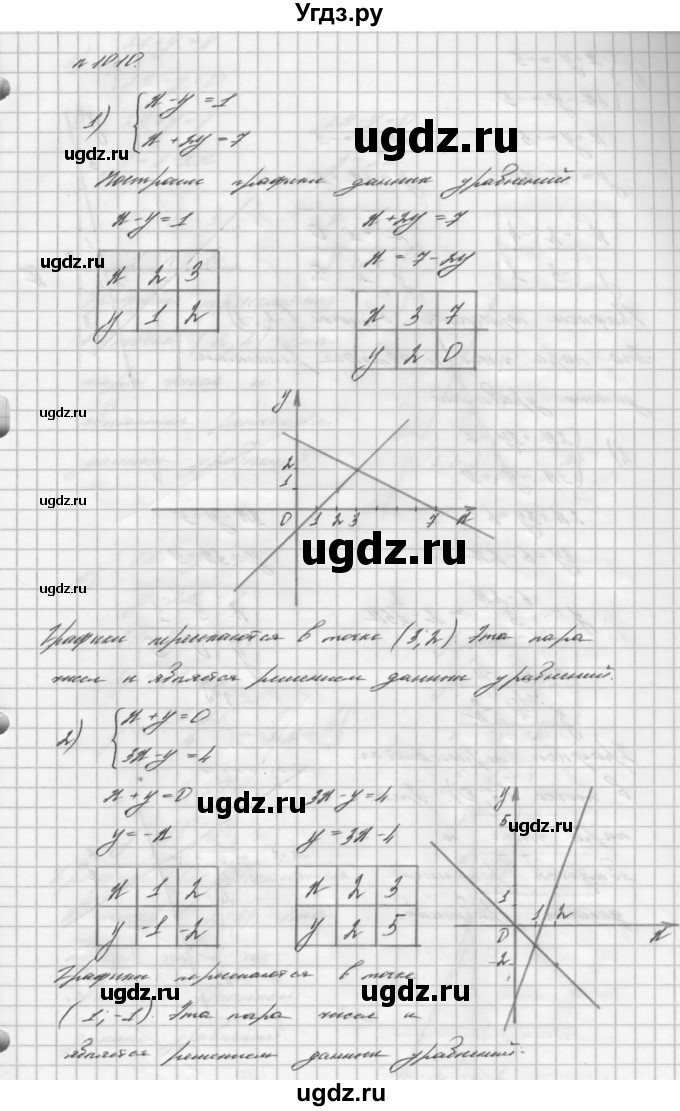 Угдз.ру
n 1010.
1) { x - y = 1
x + 2y = 7
ugdz.ru
ugdz.ru
Построим графики данных уравнений
x - y = 1
x + 2y = 7
ugdz.ru
x = 7 - 2y
x 2 3
y 1 2
x 3 7
y 2 0
ugdz.ru
y
2
1
0 1 2 3 7 x
ugdz.ru
ugdz.ru
ugdz.ru
Графики пересекаются в точке (3; 2) Эта пара
чисел и является решением данных уравнений.
2) { x + y = 0
3x - y = 4
x + y = 0
3x - y = 4
ugdz.ru
y = -x
y = 3x - 4
x 1 2
y -1 -2
x 2 3
y 2 5
y
5
ugdz.ru
1
0 1 2 x
-2
Графики пересекаются в точке
ugdz.ru
ugdz.ru
(1; -1). Эта пара чисел и
является решением данных уравнений.
ugdz.ru
ugdz.ru